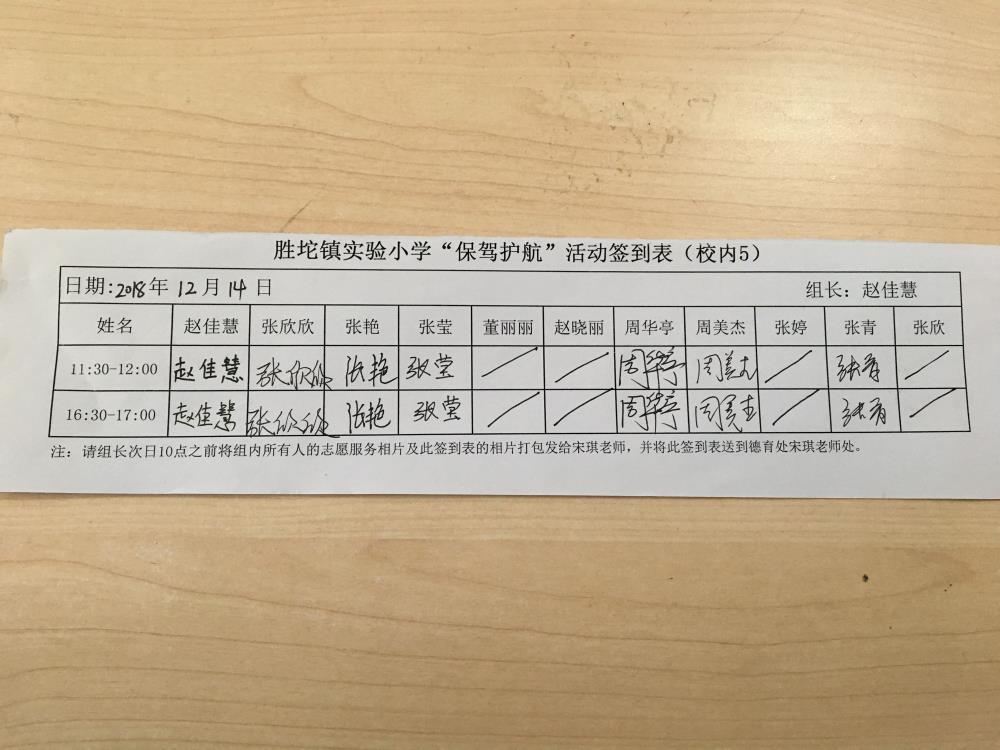 胜坨镇实验小学“保驾护航”活动签到表（校内5）
日期:2018年 12月 14 日 组长：赵佳慧
姓名 赵佳慧 张欣欣 张艳 张莹 董丽丽 赵晓丽 周华亭 周美杰 张婷 张青 张欣
11:30-12:00 赵佳慧 张欣欣 张艳 张莹 / / 周华亭 周美杰 / 张青 /
16:30-17:00 赵佳慧 张欣欣 张艳 张莹 / / 周华亭 周美杰 / 张青 /
注：请组长次日10点之前将组内所有人的志愿服务相片及此签到表的相片打包发给宋琪老师，并将此签到表送到德育处宋琪老师处。